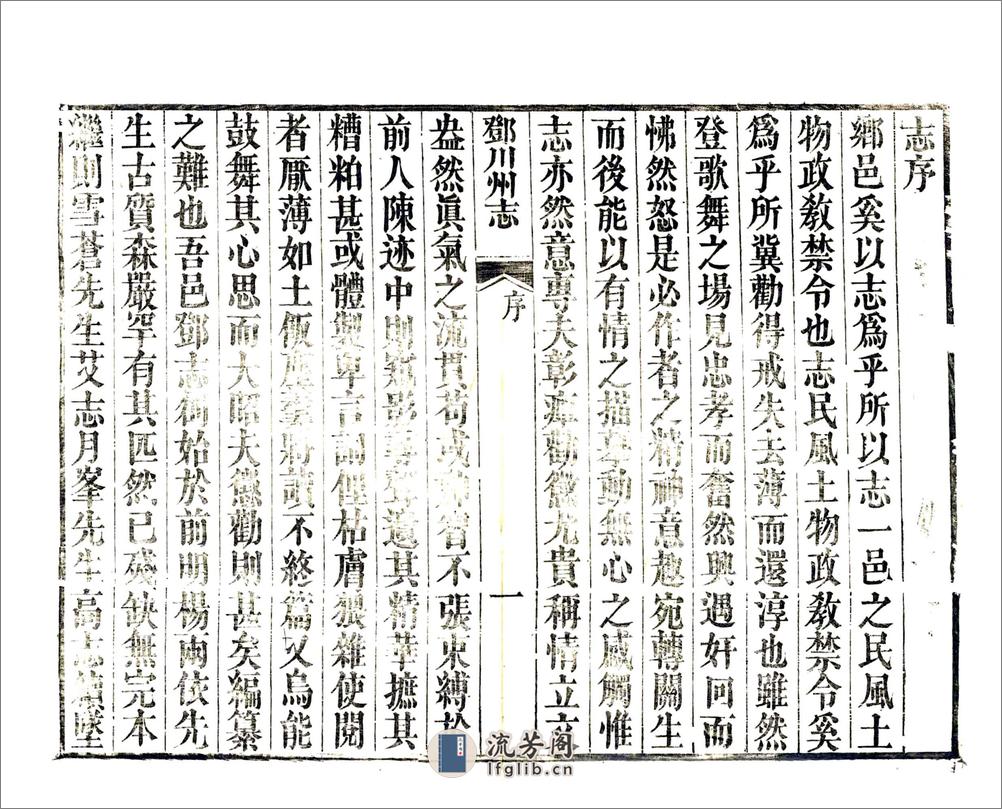 志序
鄉邑奚以志爲乎所以志一邑之民風土
物政敎禁令也志民風土物政敎禁令奚
爲乎所冀勸得戒失去薄而還淳也雖然
登歌舞之場見忠孝而奮然興遇奸回而
怫然怒是必作者之精神意趣宛轉關生
而後能以有情之描摹動無心之感觸惟
志亦然意專夫彰癉勸懲尤貴稱情立言
鄧川州志
序
一
盎然眞氣之流貫苟或神智不張束縛於
前人陳迹中則窺影尋聲遺其精華摭其
糟粕甚或體製卑言詞俚枯膚猥雜使閱
者厭薄如土飯塵羹將讀不終篇又烏能
鼓舞其心思而大昭夫懲勸則甚矣編纂
之難也吾邑鄧志創始於前明楊兩依先
生古質森嚴罕有其匹然已殘缺無完本
繼則雪蒼先生艾志月峯先生高志續墜
流芳阁
lfglib.cn